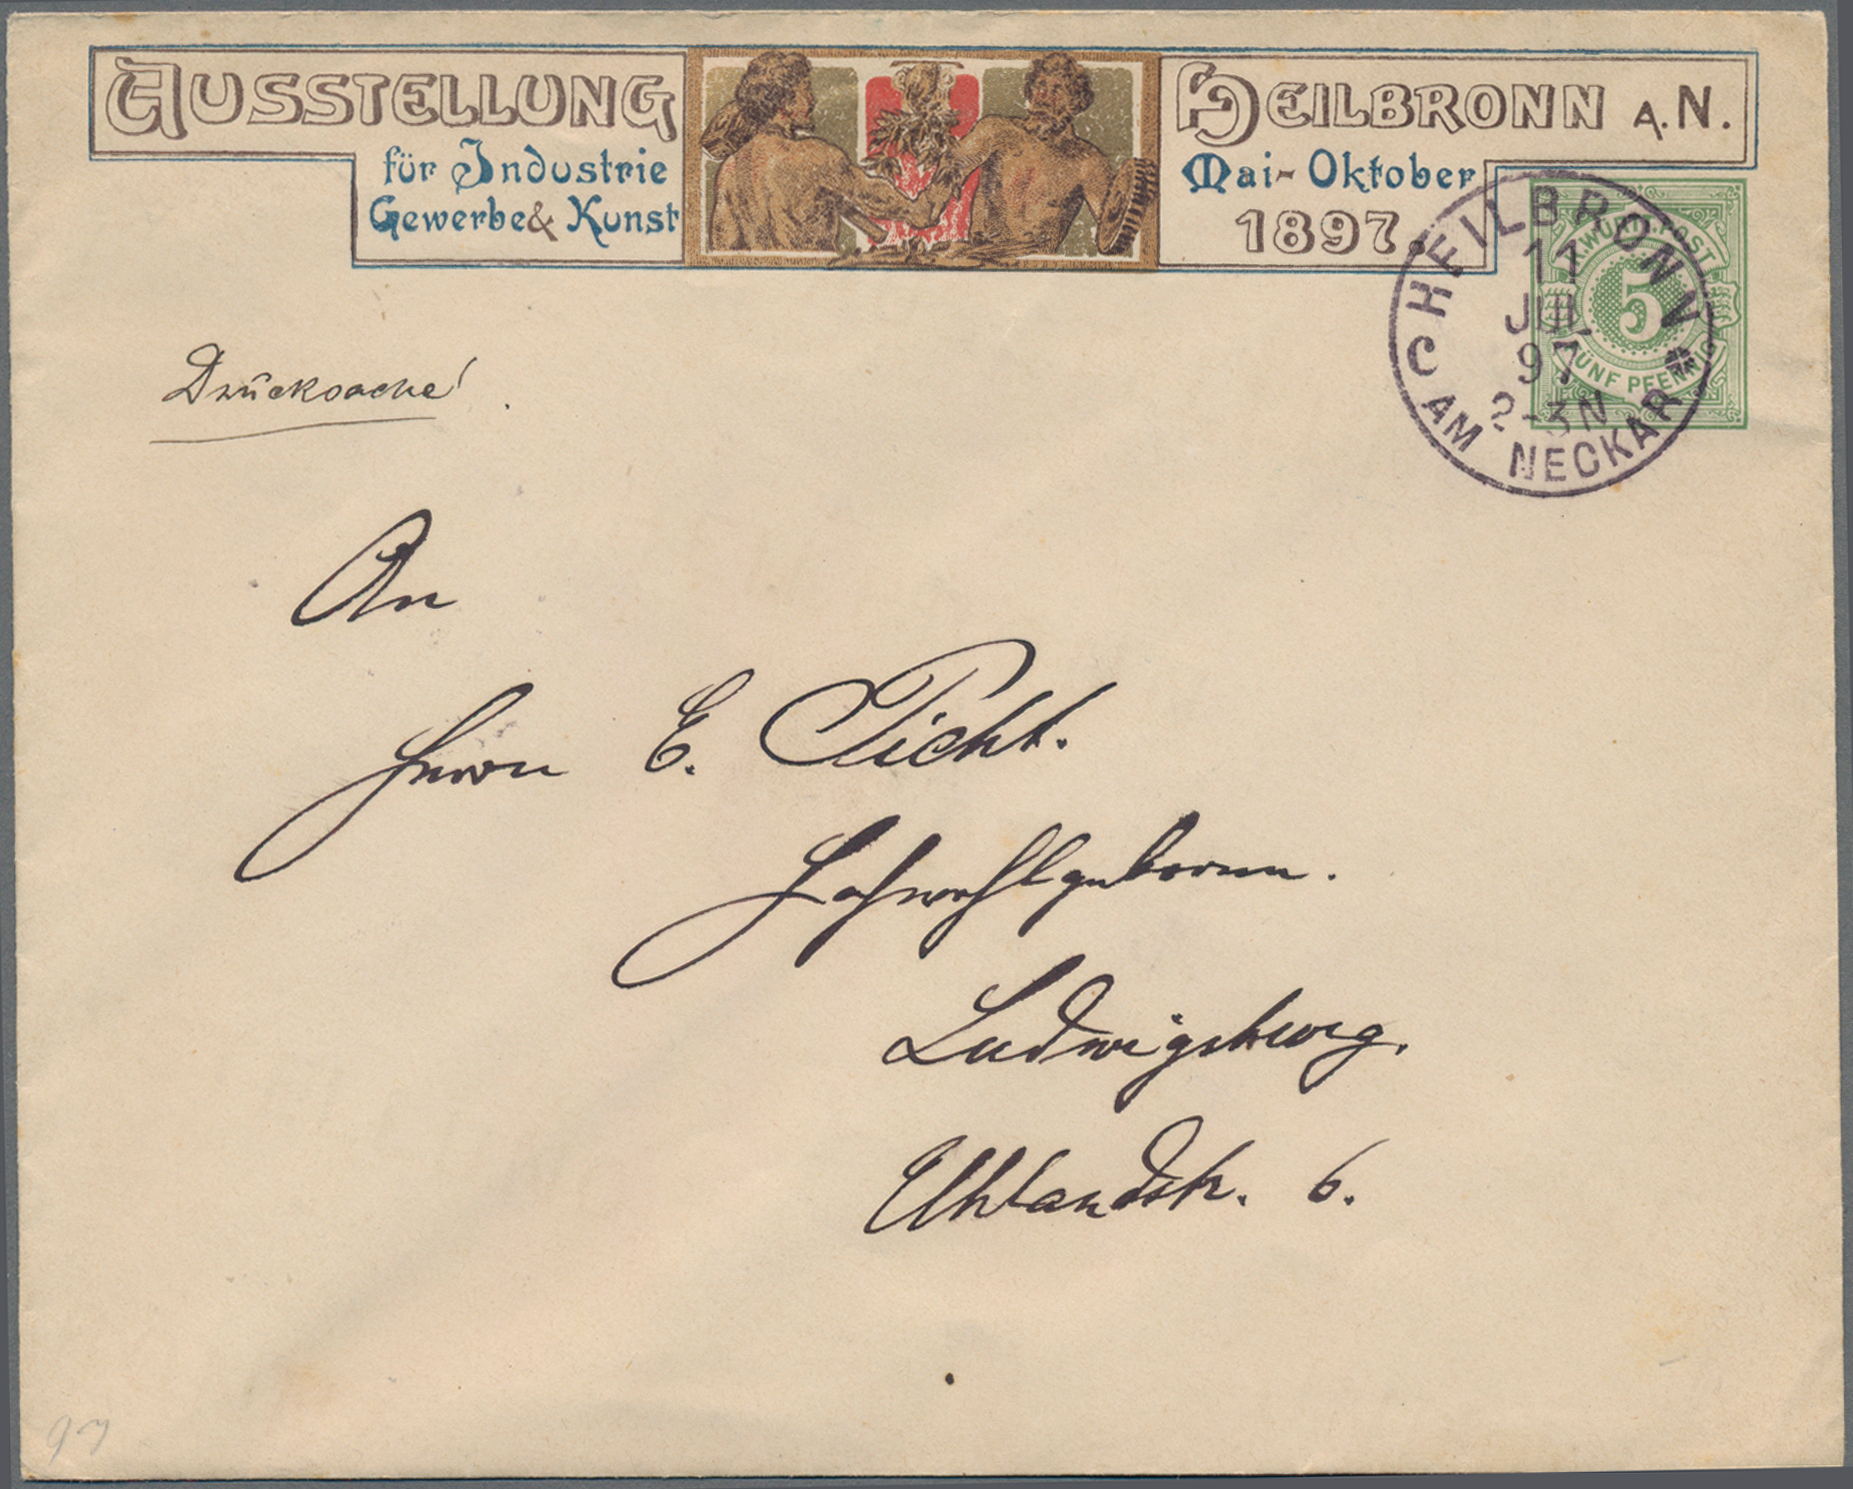 AUSSTELLUNG
für Industrie
Gewerbe & Kunst
HEILBRONN A.N.
Mai-Oktober
1897.
K. WÜRTT. POST
5
FÜNF PFENNIG
HEILBRONN
11
JUL
97
2-3N
C AM NECKAR
Drucksache!
An
Herrn E. Picht.
Hochwohlgeboren.
Ludwigsburg.
Uhlandstr. 6.
97